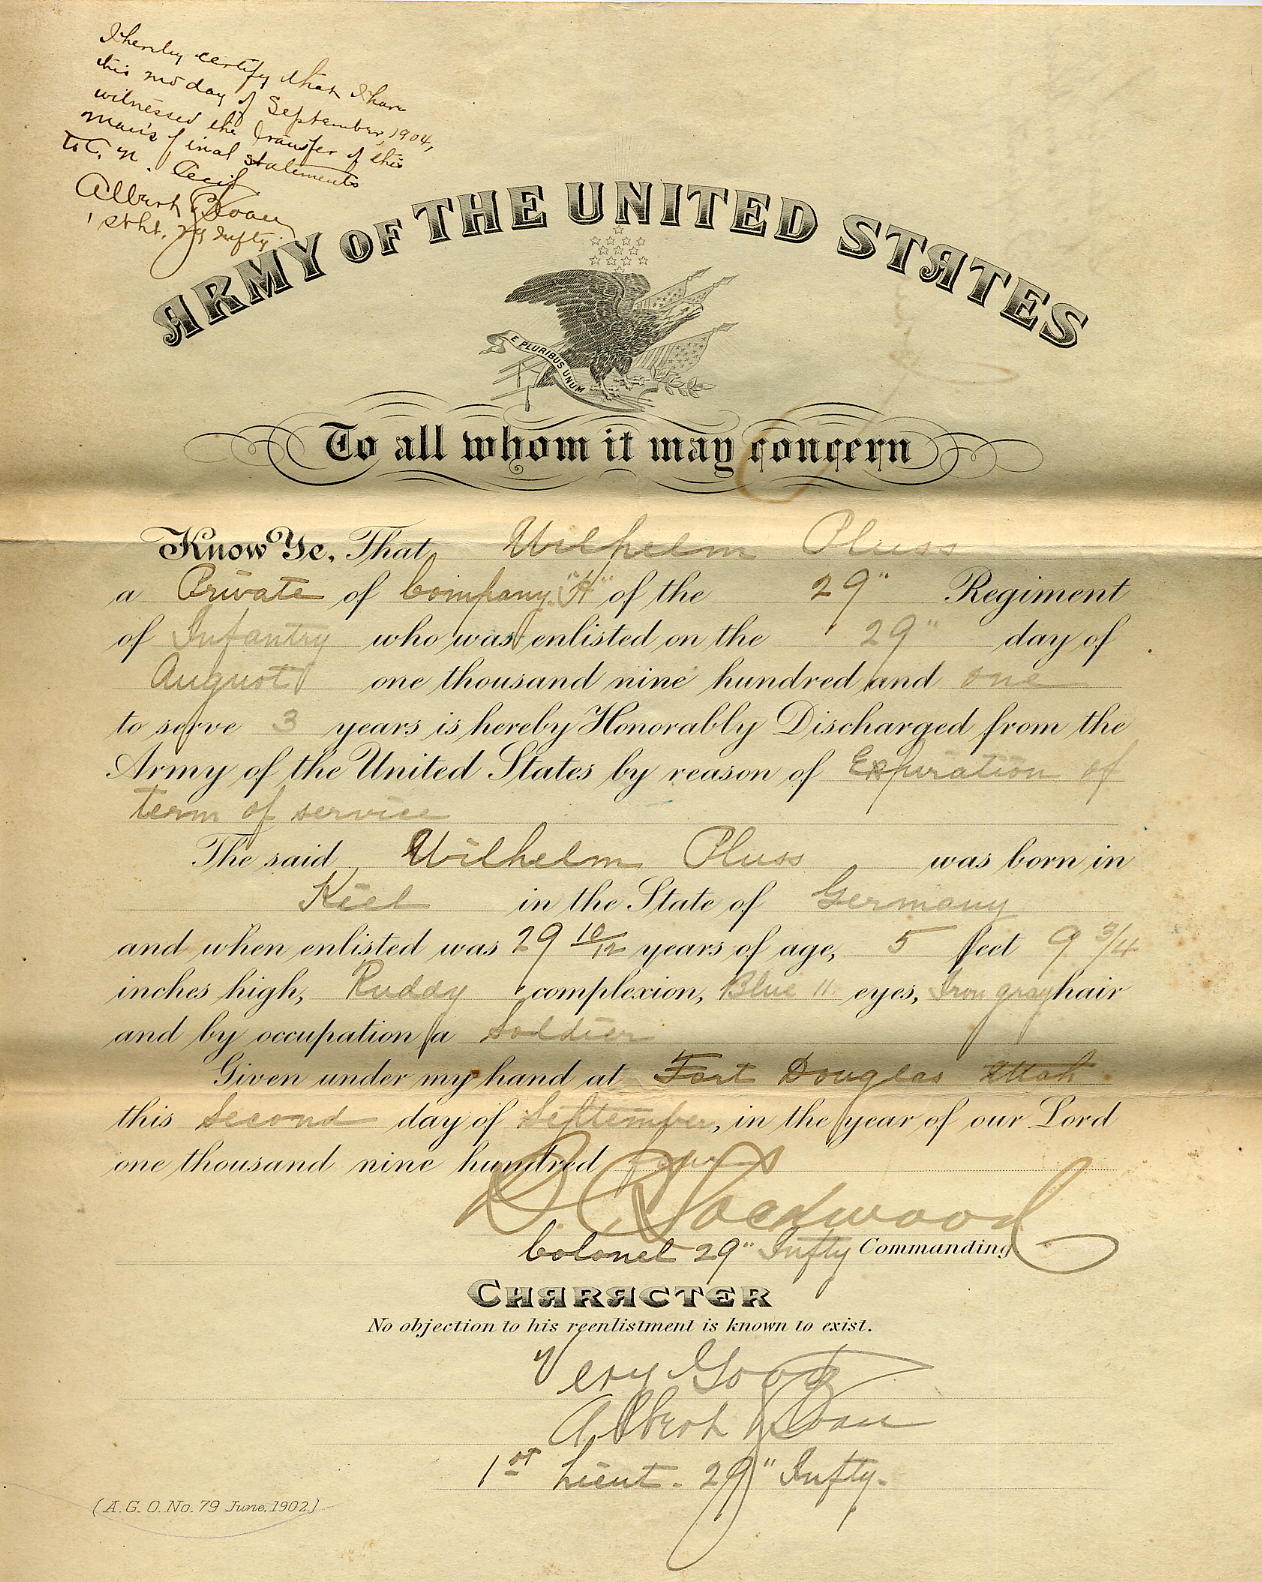 I hereby certify that I have
this 2nd day of September, 1904,
witnessed the transfer of this
man's final statements
to C. N.
Albert
1st Lt. 29 Infty.
ARMY OF THE UNITED STATES
E PLURIBUS UNUM
To all whom it may concern
Know Ye, That Wilhelm Pluss
a Private of Company "H" of the 29" Regiment
of Infantry who was enlisted on the 29" day of
August one thousand nine hundred and one
to serve 3 years is hereby Honorably Discharged from the
Army of the United States by reason of Expiration of
term of service
The said Wilhelm Pluss was born in
Kiel in the State of Germany
and when enlisted was 29 10/12 years of age, 5 feet 9 3/4
inches high, Ruddy complexion, Blue " eyes, Iron gray hair
and by occupation a Soldier
Given under my hand at Fort Douglas Utah.
this Second day of September, in the year of our Lord
one thousand nine hundred four
Lockwood
Colonel 29" Infty Commanding
CHARACTER
No objection to his reenlistment is known to exist.
Very Good
Albert
1st Lieut. 29" Infty.
(A.G.O. No. 79 June, 1902.)